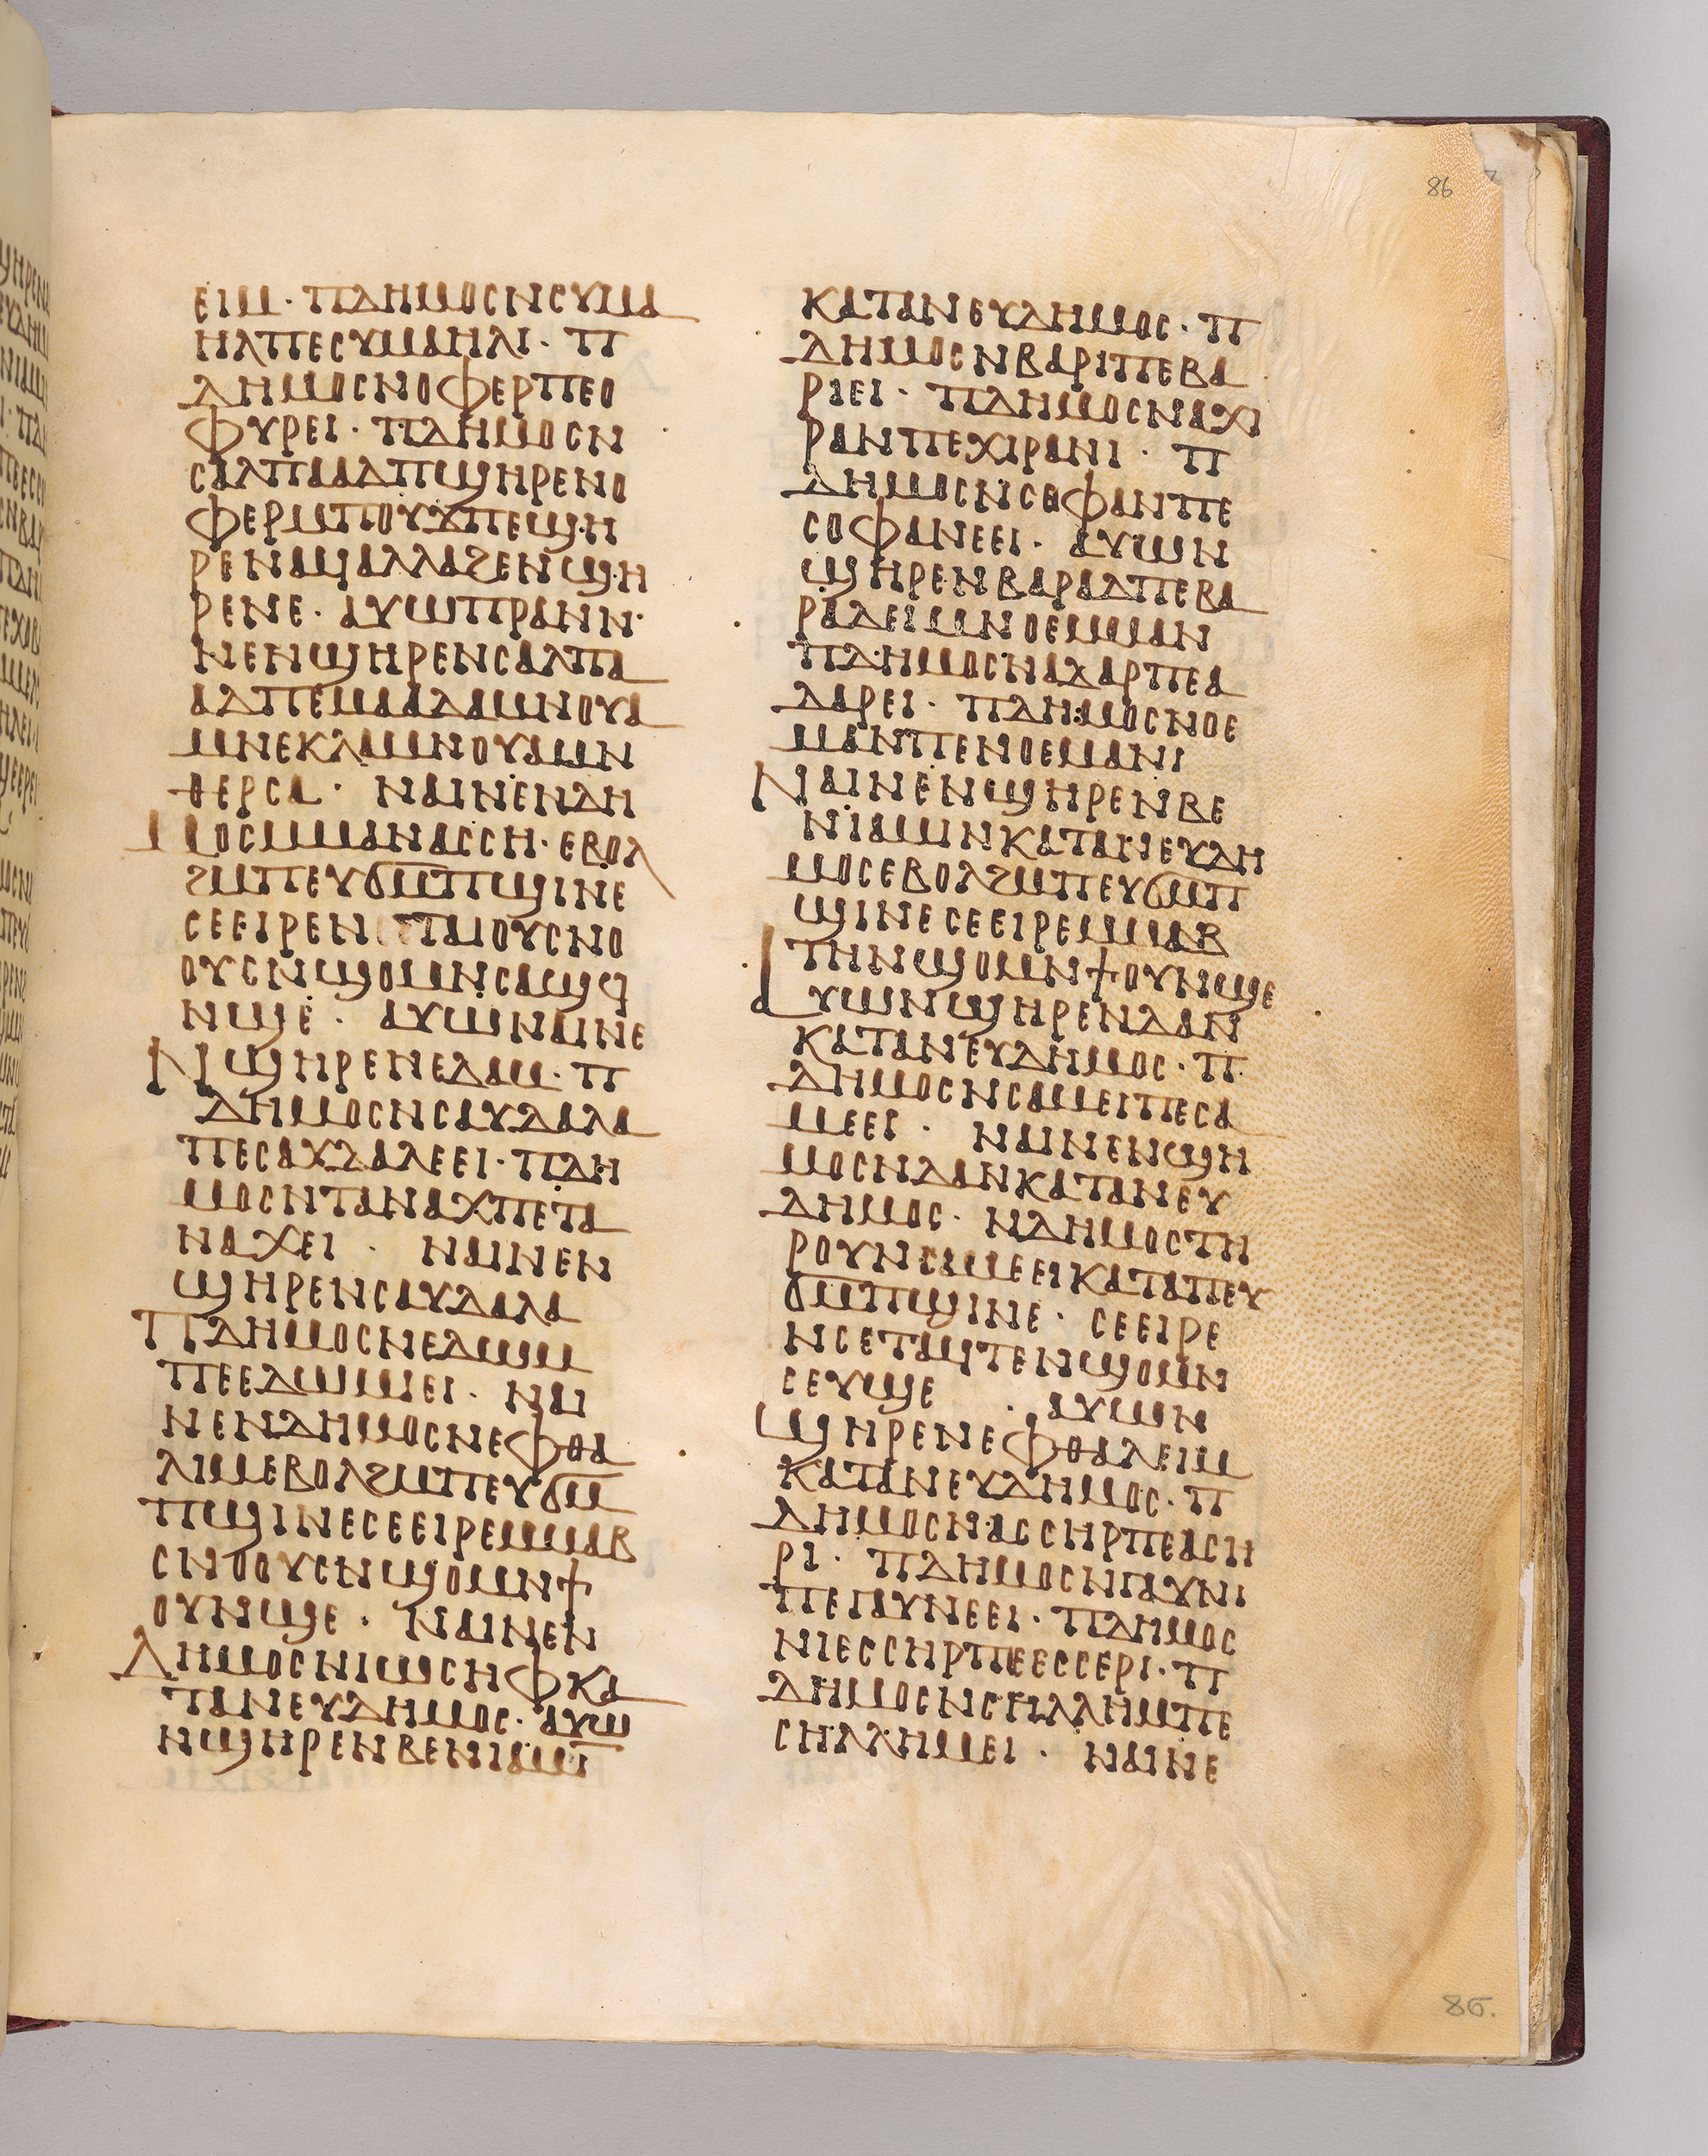 86
ⲉⲓⲙ· ⲡⲇⲏⲙⲟⲥⲛⲥⲩⲙⲁ
ⲏⲗⲡⲉⲥⲩⲙⲁⲏⲗⲓ· ⲡ
ⲇⲏⲙⲟⲥⲛⲟⲫⲉⲣⲡⲉⲟ
ⲫⲩⲣⲉⲓ· ⲡⲇⲏⲙⲟⲥⲛ
ⲥⲁⲗⲡⲁⲁⲇⲡϣⲏⲣⲉⲛⲟ
ⲫⲉⲣⲙⲡⲟⲩϫⲡⲉϣⲏ
ⲣⲉⲛⲁϥⲁⲗⲗⲁϩⲉⲛϣⲏ
ⲣⲉⲛⲉ· ⲁⲩⲱⲡⲣⲁⲛⲛ·
ⲛⲉⲛϣⲏⲣⲉⲛⲥⲁⲗⲡⲁ
ⲁⲇⲡⲉⲙⲁⲁⲗⲁⲙⲛⲟⲩⲁ
ⲙⲛⲉⲕⲗⲁⲙⲛⲟⲩⲁⲙⲛ
ⲑⲉⲣⲥⲁ· ⲛⲁⲓⲛⲉⲛⲇⲏ
ⲙⲟⲥⲙⲙⲁⲛⲁⲥⲥⲏ· ⲉⲃⲟⲗ
ϩⲙⲡⲉⲩϭⲙⲡϣⲓⲛⲉ
ⲥⲉⲉⲓⲣⲉⲛ ⲧⲁⲓⲟⲩⲥⲛⲟ
ⲟⲩⲥⲛϣⲟⲙⲛⲥⲁϣϥ
ⲛϣⲉ· ⲁⲩⲱⲛⲁⲓⲛⲉ
ⲛϣⲏⲣⲉⲛⲉⲇⲱⲙ· ⲡ
ⲇⲏⲙⲟⲥⲛⲥⲁⲩⲇⲁⲗⲁ
ⲡⲉⲥⲁⲩⲇⲁⲗⲉⲉⲓ· ⲡⲇⲏ
ⲙⲟⲥⲛⲧⲁⲛⲁⲭⲡⲉⲧⲁ
ⲛⲁⲭⲉⲓ· ⲛⲁⲓⲛⲉⲛ
ϣⲏⲣⲉⲛⲥⲁⲩⲇⲁⲗⲁ
ⲡⲇⲏⲙⲟⲥⲛⲉⲇⲱⲙ
ⲡⲉⲉⲇⲱⲙⲉⲓ· ⲛⲁⲓ
ⲛⲉⲛⲇⲏⲙⲟⲥⲛⲉⲫⲑⲁ
ⲗⲓⲙⲉⲃⲟⲗϩⲙⲡⲉⲩϭⲙ
ⲡϣⲓⲛⲉⲥⲉⲉⲓⲣⲉⲙⲙⲁⲃ
ⲥⲛⲟⲟⲩⲥⲛϣⲟⲙⲛϯ
ⲟⲩⲛϣⲉ· ⲛⲁⲓⲛⲉⲛ
ⲇⲏⲙⲟⲥⲛⲓⲱⲥⲏⲫⲕⲁ
ⲧⲁⲛⲉⲩⲇⲏⲙⲟⲥ· ⲁⲩⲱ
ⲛϣⲏⲣⲉⲛⲃⲉⲛⲓⲁⲙⲓ
ⲕⲁⲧⲁⲛⲉⲩⲇⲏⲙⲟⲥ· ⲡ
ⲇⲏⲙⲟⲥⲛⲃⲁⲣⲓⲡⲉⲃⲁ
ⲣⲓⲉⲓ· ⲡⲇⲏⲙⲟⲥⲛⲁⲭⲓ
ⲣⲁⲛⲡⲉⲭⲓⲣⲁⲛⲓ· ⲡ
ⲇⲏⲙⲟⲥⲛⲥⲟⲫⲁⲛⲡⲉ
ⲥⲟⲫⲁⲛⲉⲉⲓ· ⲁⲩⲱⲛ
ϣⲏⲣⲉⲛⲃⲁⲣⲁⲇⲡⲉⲃⲁ
ⲣⲁⲇⲉⲓⲙⲛⲟⲉⲙⲁⲛ
ⲡⲇⲏⲙⲟⲥⲛⲁⲇⲁⲣⲡⲉⲁ
ⲇⲁⲣⲉⲓ· ⲡⲇⲏⲙⲟⲥⲛⲟⲉ
ⲙⲁⲛⲡⲉⲛⲟⲉⲙⲁⲛⲓ
ⲛⲁⲓⲛⲉⲛϣⲏⲣⲉⲛⲃⲉ
ⲛⲓⲁⲙⲓⲛⲕⲁⲧⲁⲛⲉⲩⲇⲏ
ⲙⲟⲥⲉⲃⲟⲗϩⲙⲡⲉⲩϭⲙⲡ
ϣⲓⲛⲉⲥⲉⲉⲓⲣⲉⲙⲙⲁⲃ
ⲧⲏⲛϣⲟⲙⲛϯⲟⲩⲛϣⲉ
ⲁⲩⲱⲛϣⲏⲣⲉⲛⲇⲁⲛ
ⲕⲁⲧⲁⲛⲉⲩⲇⲏⲙⲟⲥ· ⲡ
ⲇⲏⲙⲟⲥⲛⲥⲁⲙⲉⲓⲡⲉⲥⲁ
ⲙⲉⲉⲓ· ⲛⲁⲓⲛⲉⲛϣⲏ
ⲙⲟⲥⲛⲇⲁⲛⲕⲁⲧⲁⲛⲉⲩ
ⲇⲏⲙⲟⲥ· ⲛⲇⲏⲙⲟⲥⲧⲏ
ⲣⲟⲩⲛⲥⲁⲙⲉⲉⲓⲕⲁⲧⲁⲡⲉⲩ
ϭⲙⲡϣⲓⲛⲉ· ⲥⲉⲉⲓⲣⲉ
ⲛⲥⲉⲧⲁϥⲧⲉⲛϣⲟⲙⲛ
ⲥⲉⲩϣⲉ· ⲁⲩⲱⲛ
ϣⲏⲣⲉⲛⲉⲫⲑⲁⲗⲉⲓⲙ
ⲕⲁⲧⲁⲛⲉⲩⲇⲏⲙⲟⲥ· ⲡ
ⲇⲏⲙⲟⲥⲛⲁⲥⲥⲏⲣⲡⲉⲁⲥⲏ
ⲣⲓ· ⲡⲇⲏⲙⲟⲥⲛⲅⲁⲩⲛⲓ
ⲡⲉⲅⲁⲩⲛⲉⲉⲓ· ⲡⲇⲏⲙⲟⲥ
ⲛⲓⲉⲥⲥⲏⲣⲡⲉⲉⲥⲥⲉⲣⲓ· ⲡ
ⲇⲏⲙⲟⲥⲛⲥⲏⲗⲗⲏⲙⲡⲉ
ⲥⲏⲗⲗⲏⲙⲉⲓ· ⲛⲁⲓⲛⲉ
86.